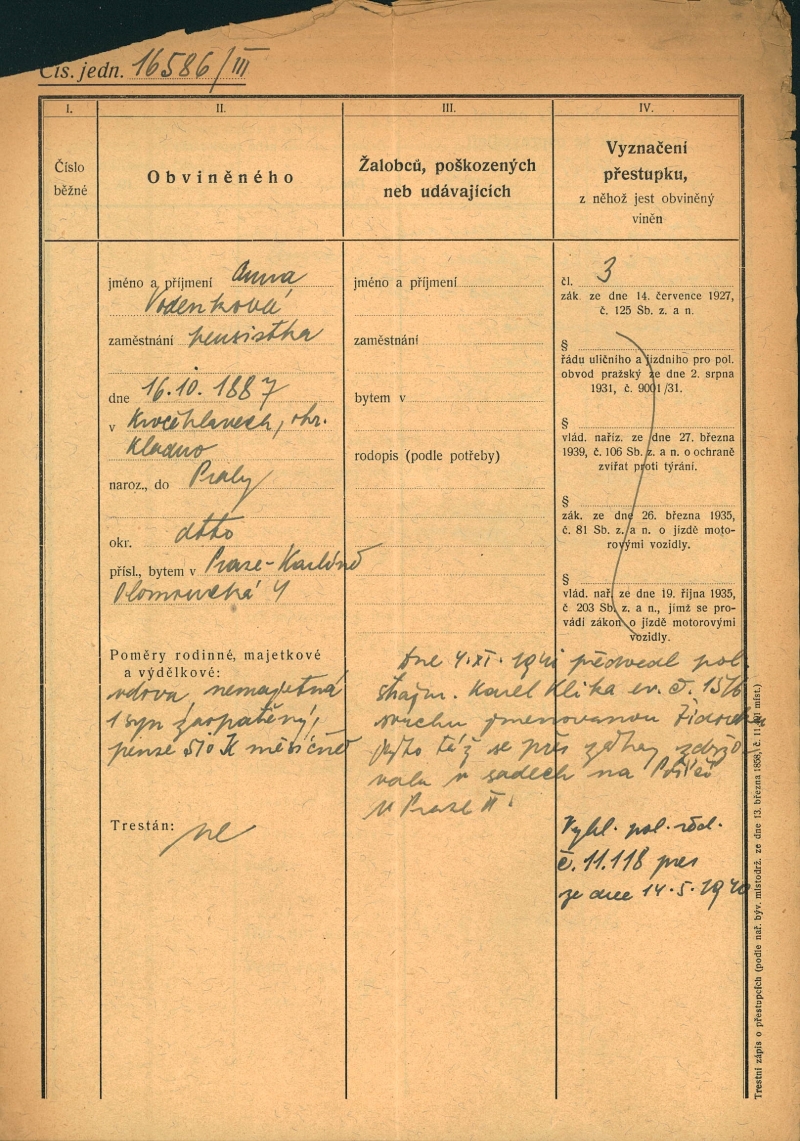 Čís. jedn. 16586/III
I.
Číslo
běžné
II.
Obviněného
III.
Žalobců, poškozených
neb udávajících
IV.
Vyznačení
přestupku,
z něhož jest obviněný
viněn
jméno a příjmení Anna
Vodenková
zaměstnání pensistka
dne 16.10. 1887
v Kročehlavech, okr.
Kladno
naroz., do Prahy
okr. dtto
přísl., bytem v Praze-Karlíně
Olomoucká 4
Poměry rodinné, majetkové
a výdělkové:
vdova nemajetná
1 syn zaopatřený,
pense 510 K měsíčně
Trestán: ne
jméno a příjmení
zaměstnání
bytem v
rodopis (podle potřeby)
Dne 4.XI. 1941 předvedl pol.
strážm. Karel Klika ev. č. 1576
svrchu jmenovanou židovku
ježto též se přes zákaz zdržo-
vala v sadech na Poříčí
v Praze II.
čl. 3
zák. ze dne 14. července 1927,
č. 125 Sb. z. a n.
§
řádu uličního a jízdního pro pol.
obvod pražský ze dne 2. srpna
1931, č. 9001/31.
§
vlád. naříz. ze dne 27. března
1939, č. 106 Sb. z. a n. o ochraně
zvířat proti týrání.
§
zák. ze dne 26. března 1935,
č. 81 Sb. z. a n. o jízdě moto-
rovými vozidly.
§
vlád. nař. ze dne 19. října 1935,
č 203 Sb. z. a n., jímž se pro-
vádí zákon o jízdě motorovými
vozidly.
Vyhl. pol. řed.
č. 11.118 pres
ze dne 14.5.1940
Trestní zápis o přestupcích (podle nař. býv. místodrž. ze dne 13. března 1858, č. 11.101 míst.)